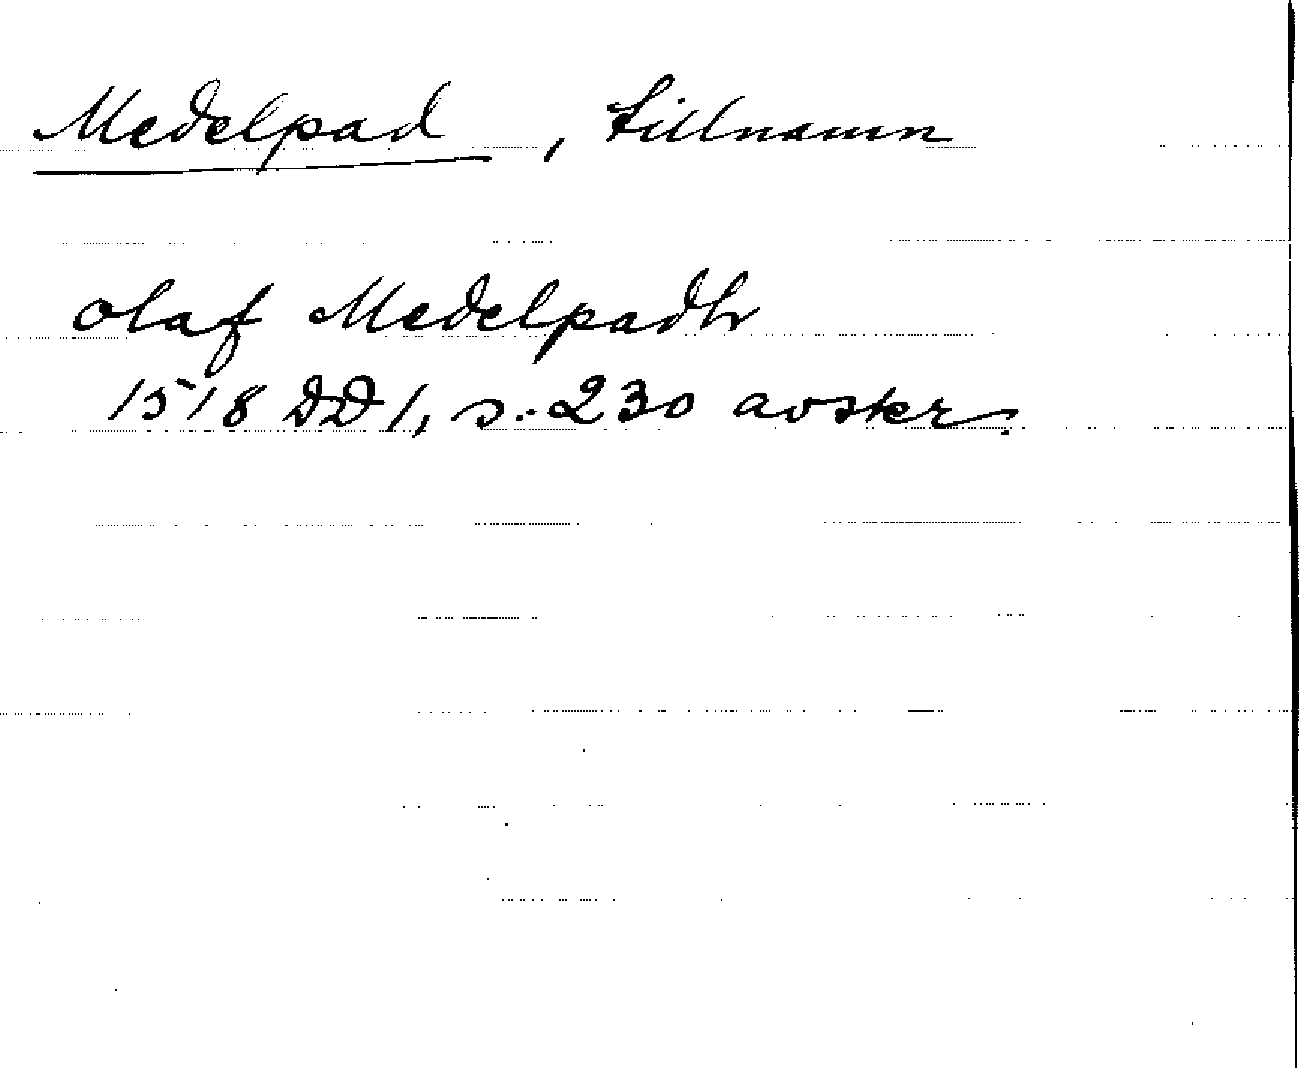 Medelpad, tillnamn
olaf Medelpadh
1518 DD 1, s. 230 avskr.